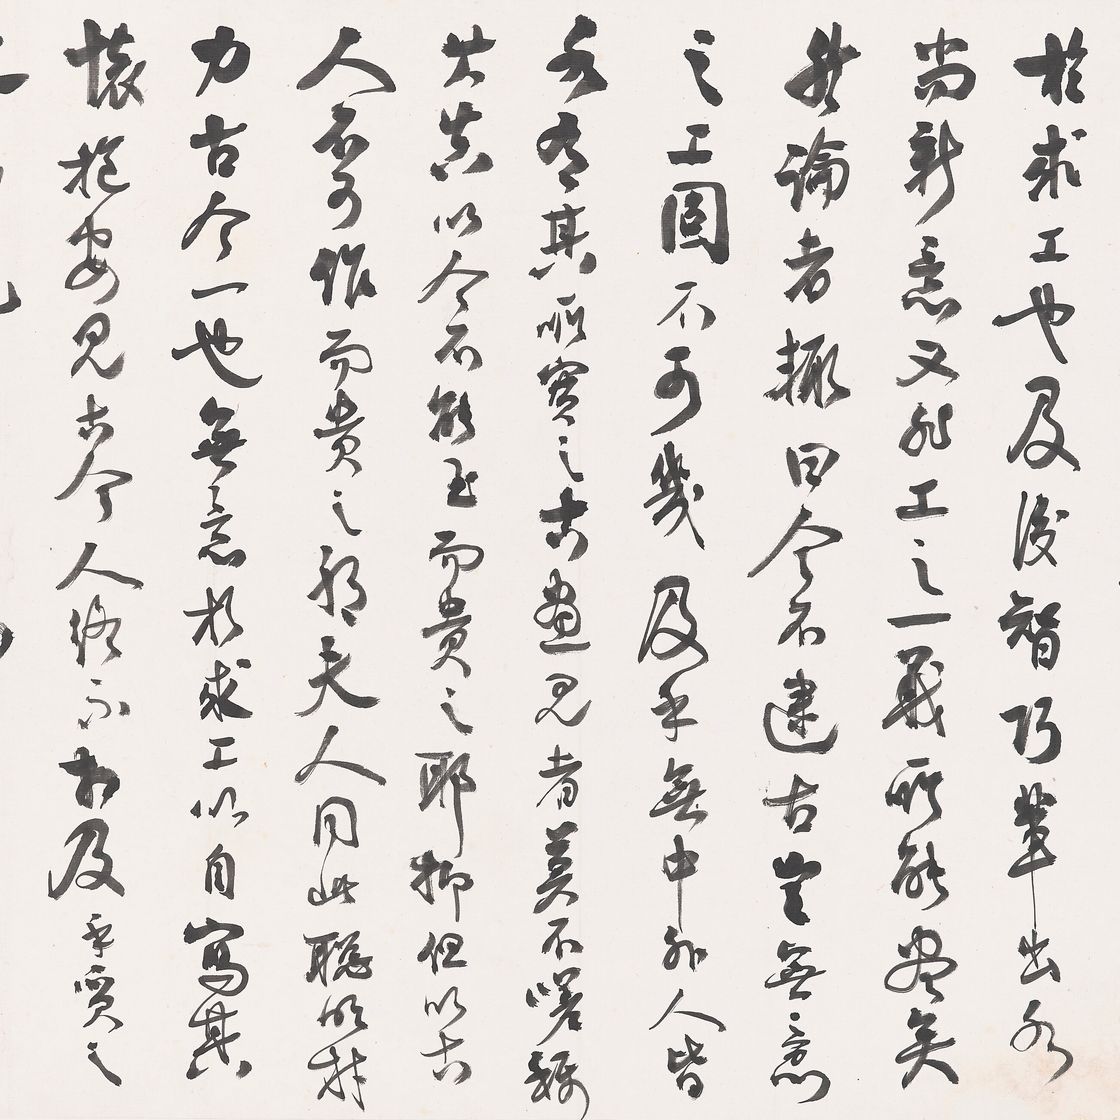 於求工也及後智巧輩出各
尚新意又非工之一義所能盡矣
然論者輒曰今不逮古豈無意
之工固不可幾及乎無中外人皆
各有其所寶之古畫見者莫不嗟稱
其真以今不能至而貴之耶抑但以古
人不可作而貴之耶夫人同此聰明材
力古今一也無意於求工以自寫其
懷抱安見古今人終不相及乎質之